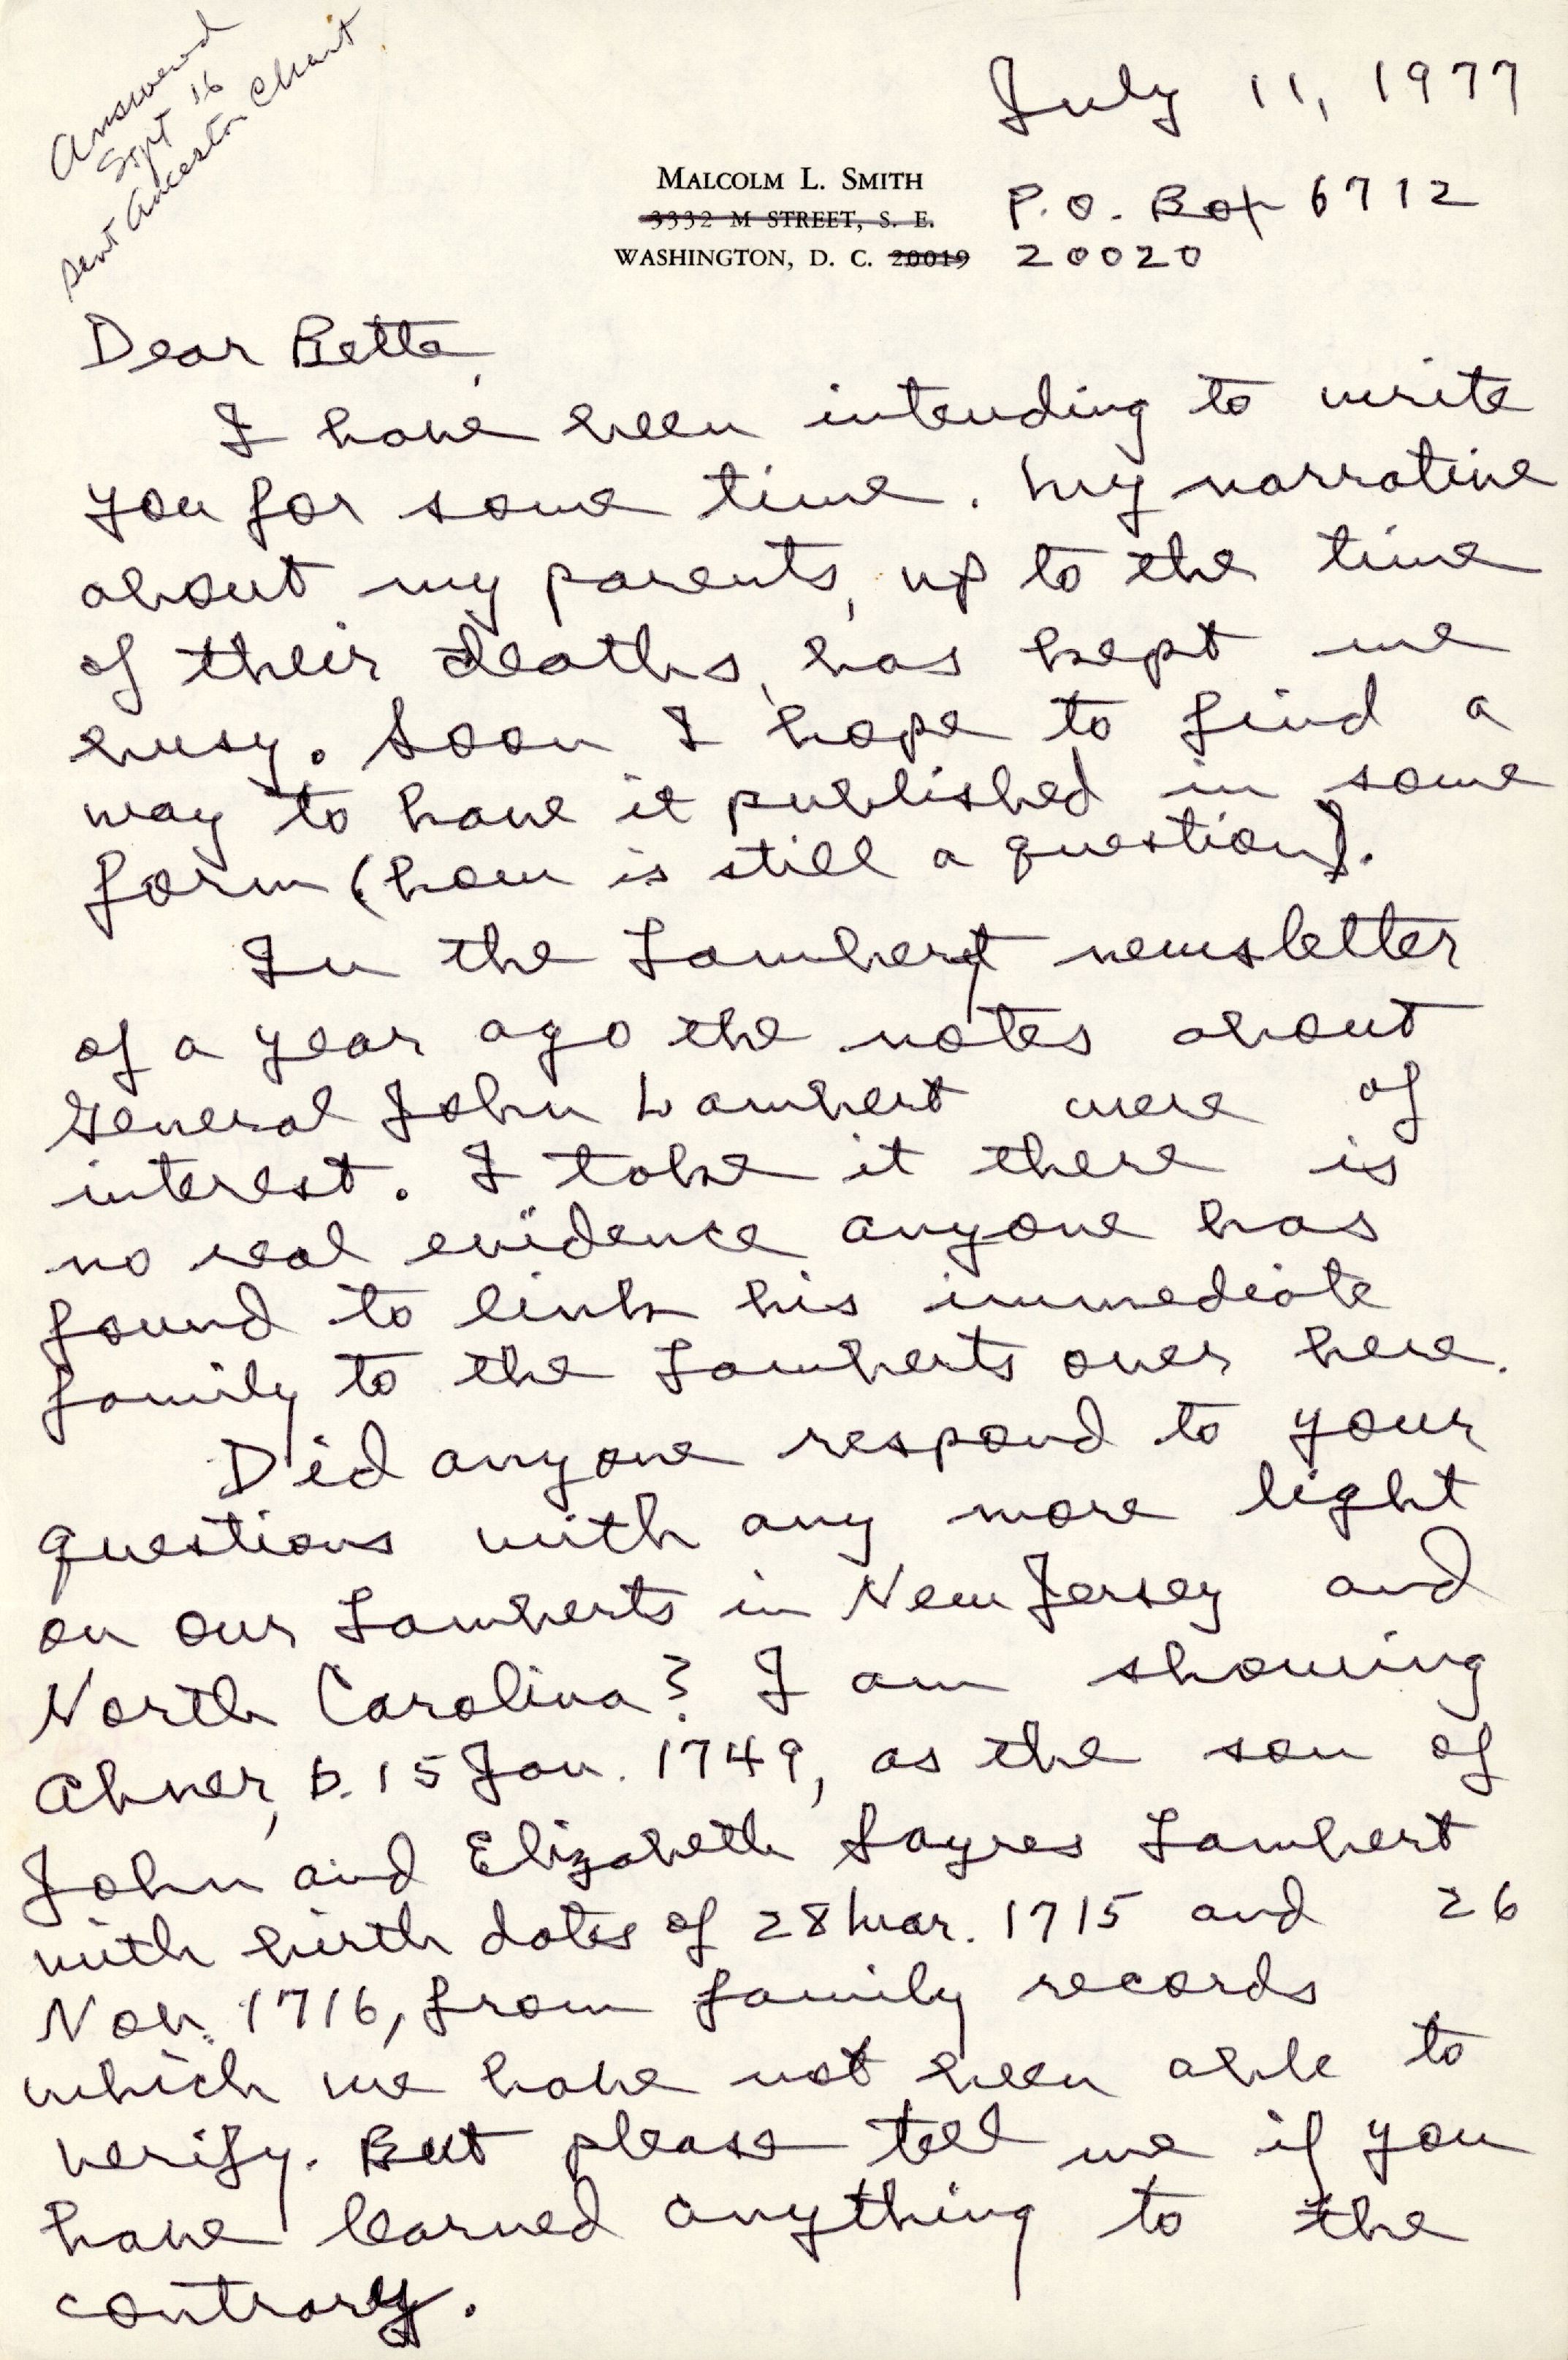 Answered
Sept 16
sent Ancestor Chart
July 11, 1977
MALCOLM L. SMITH
3332 M STREET, S. E. P.O. Box 6712
WASHINGTON, D. C. 20019 20020
Dear Bette,
I have been intending to write
you for some time. My narrative
about my parents, up to the time
of their deaths, has kept me
busy. Soon I hope to find a
way to have it published in some
form (how is still a question).
In the Lambert newsletter
of a year ago the notes about
General John Lambert were of
interest. I take it there is
no real evidence anyone has
found to link his immediate
family to the Lamberts over here.
Did anyone respond to your
questions with any more light
on our Lamberts in New Jersey and
North Carolina? I am showing
Abner, b. 15 Jan. 1749, as the son of
John and Elizabeth Sayres Lambert
with birth dates of 28 Mar. 1715 and 26
Nov. 1716, from family records
which we have not been able to
verify. But please tell me if you
have learned anything to the
contrary.